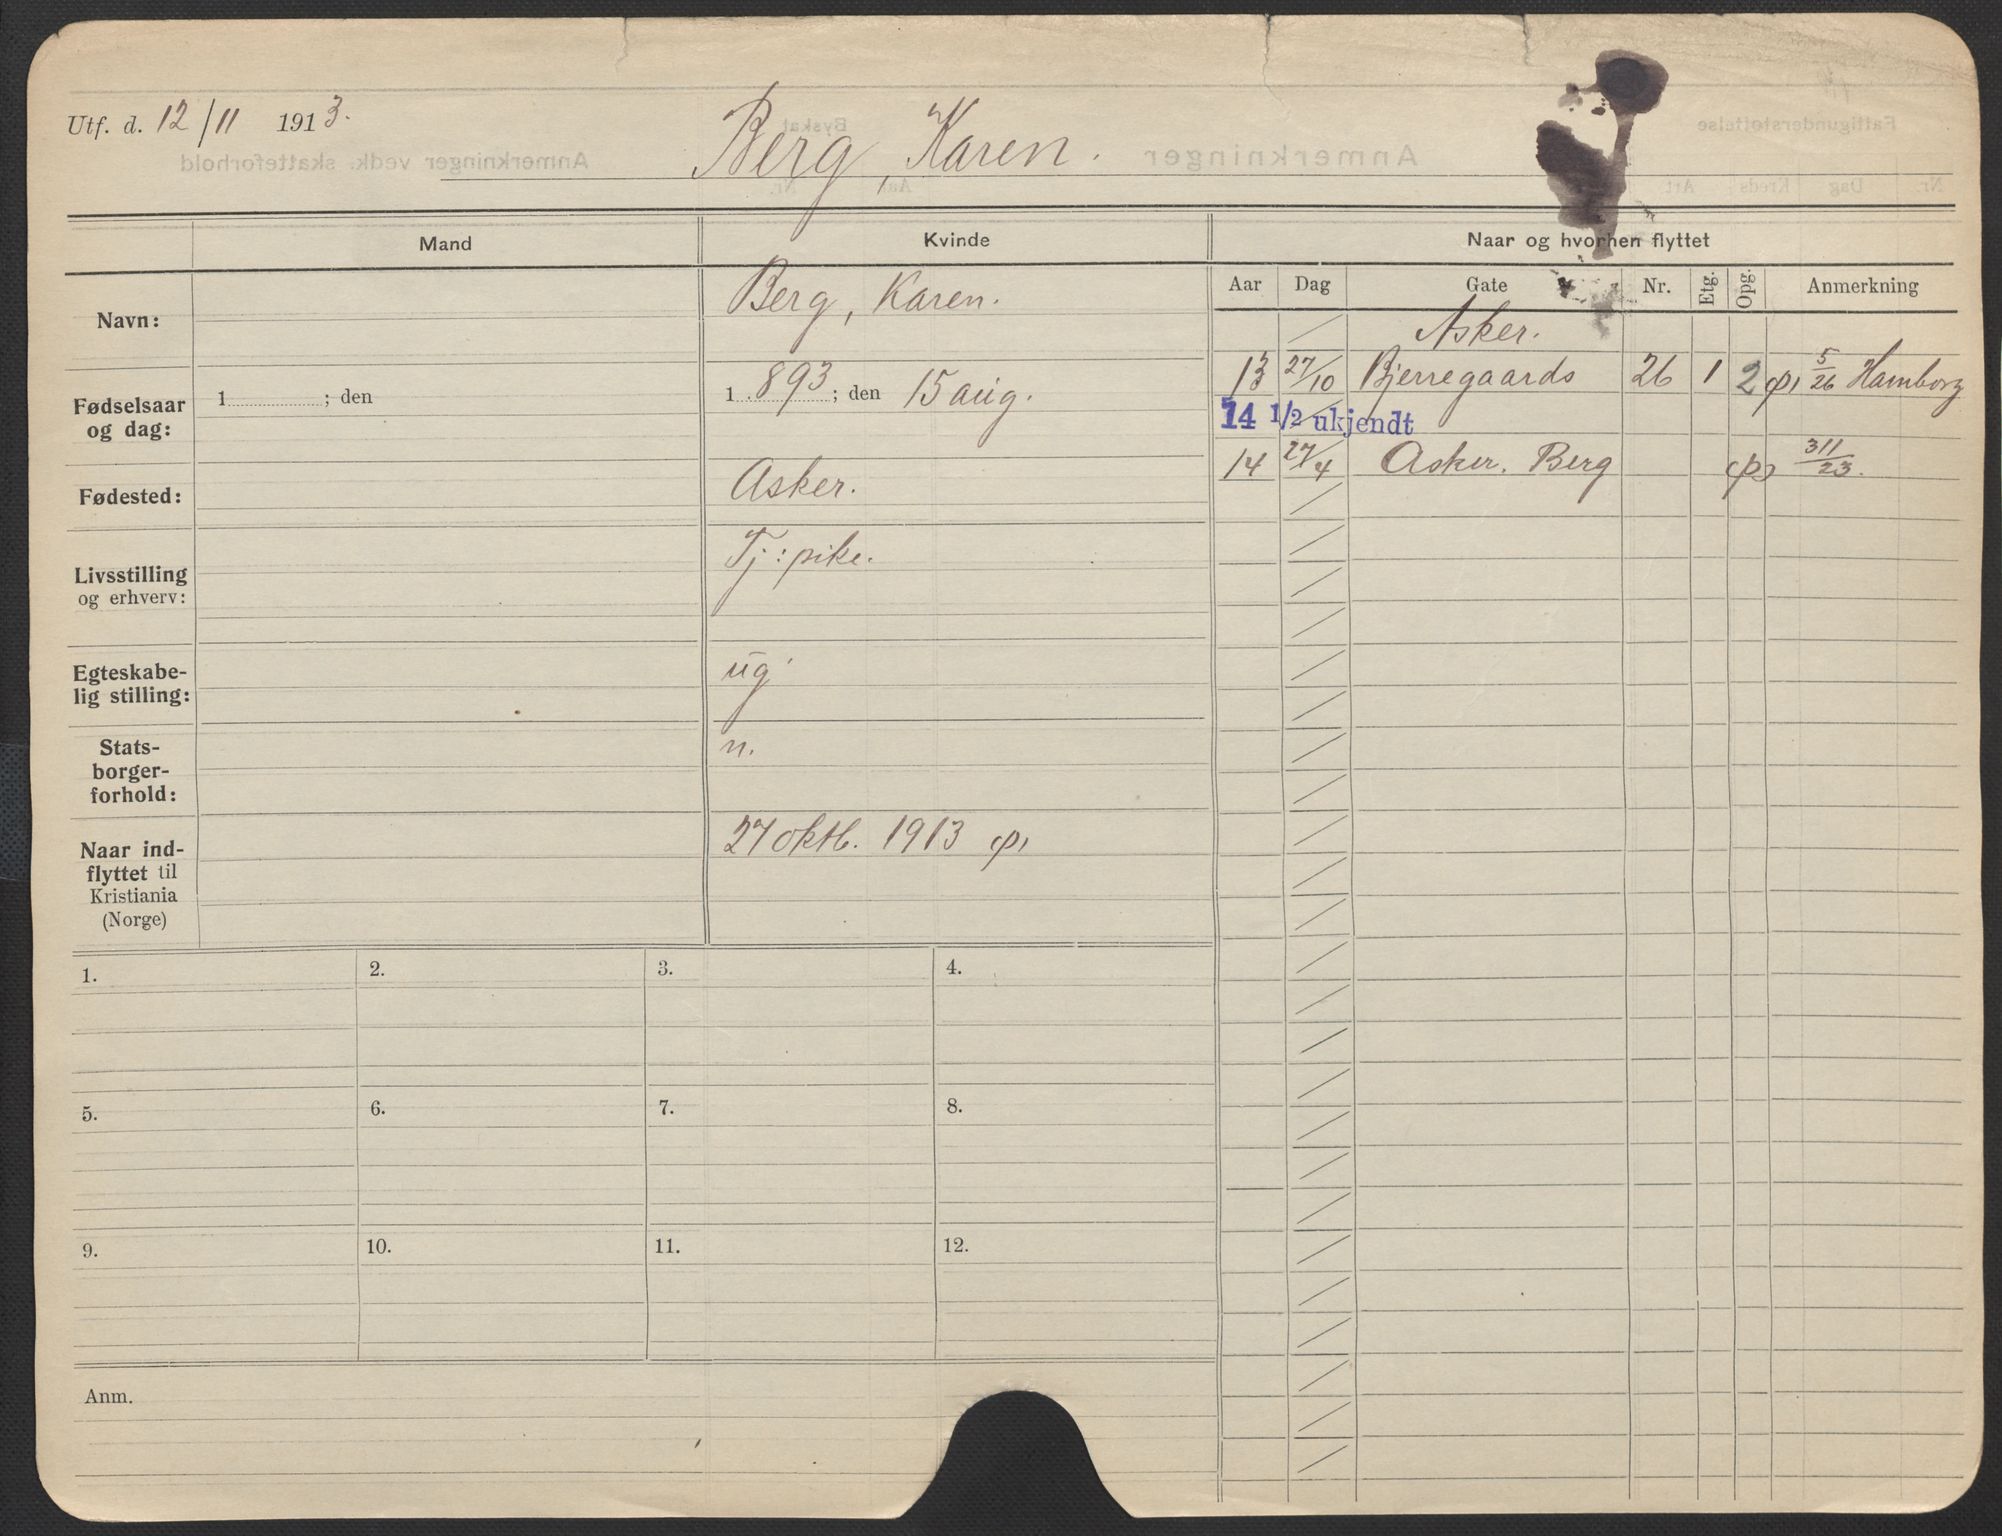 Utf. d. 12/11 1913.
Berg, Karen.
Mand
Kvinde
Naar og hvorhen flyttet
Aar Dag Gate Nr. Etg. Opg. Anmerkning
Navn:
Berg, Karen.
Fødselsaar og dag:
1 ; den
1 893 ; den 15 aug.
Fødested:
Asker.
Livsstilling og erhverv:
Tj: pike.
Egteskabelig stilling:
ug
Statsborgerforhold:
n.
Naar indflyttet til Kristiania (Norge)
27 oktb. 1913
Asker.
13 27/10 Bjerregaards 26 1 2 5/26 Hamborg
14 1/2 ukjendt
14 27/4 Asker. Berg 311/23.
1. 2. 3. 4.
5. 6. 7. 8.
9. 10. 11. 12.
Anm.